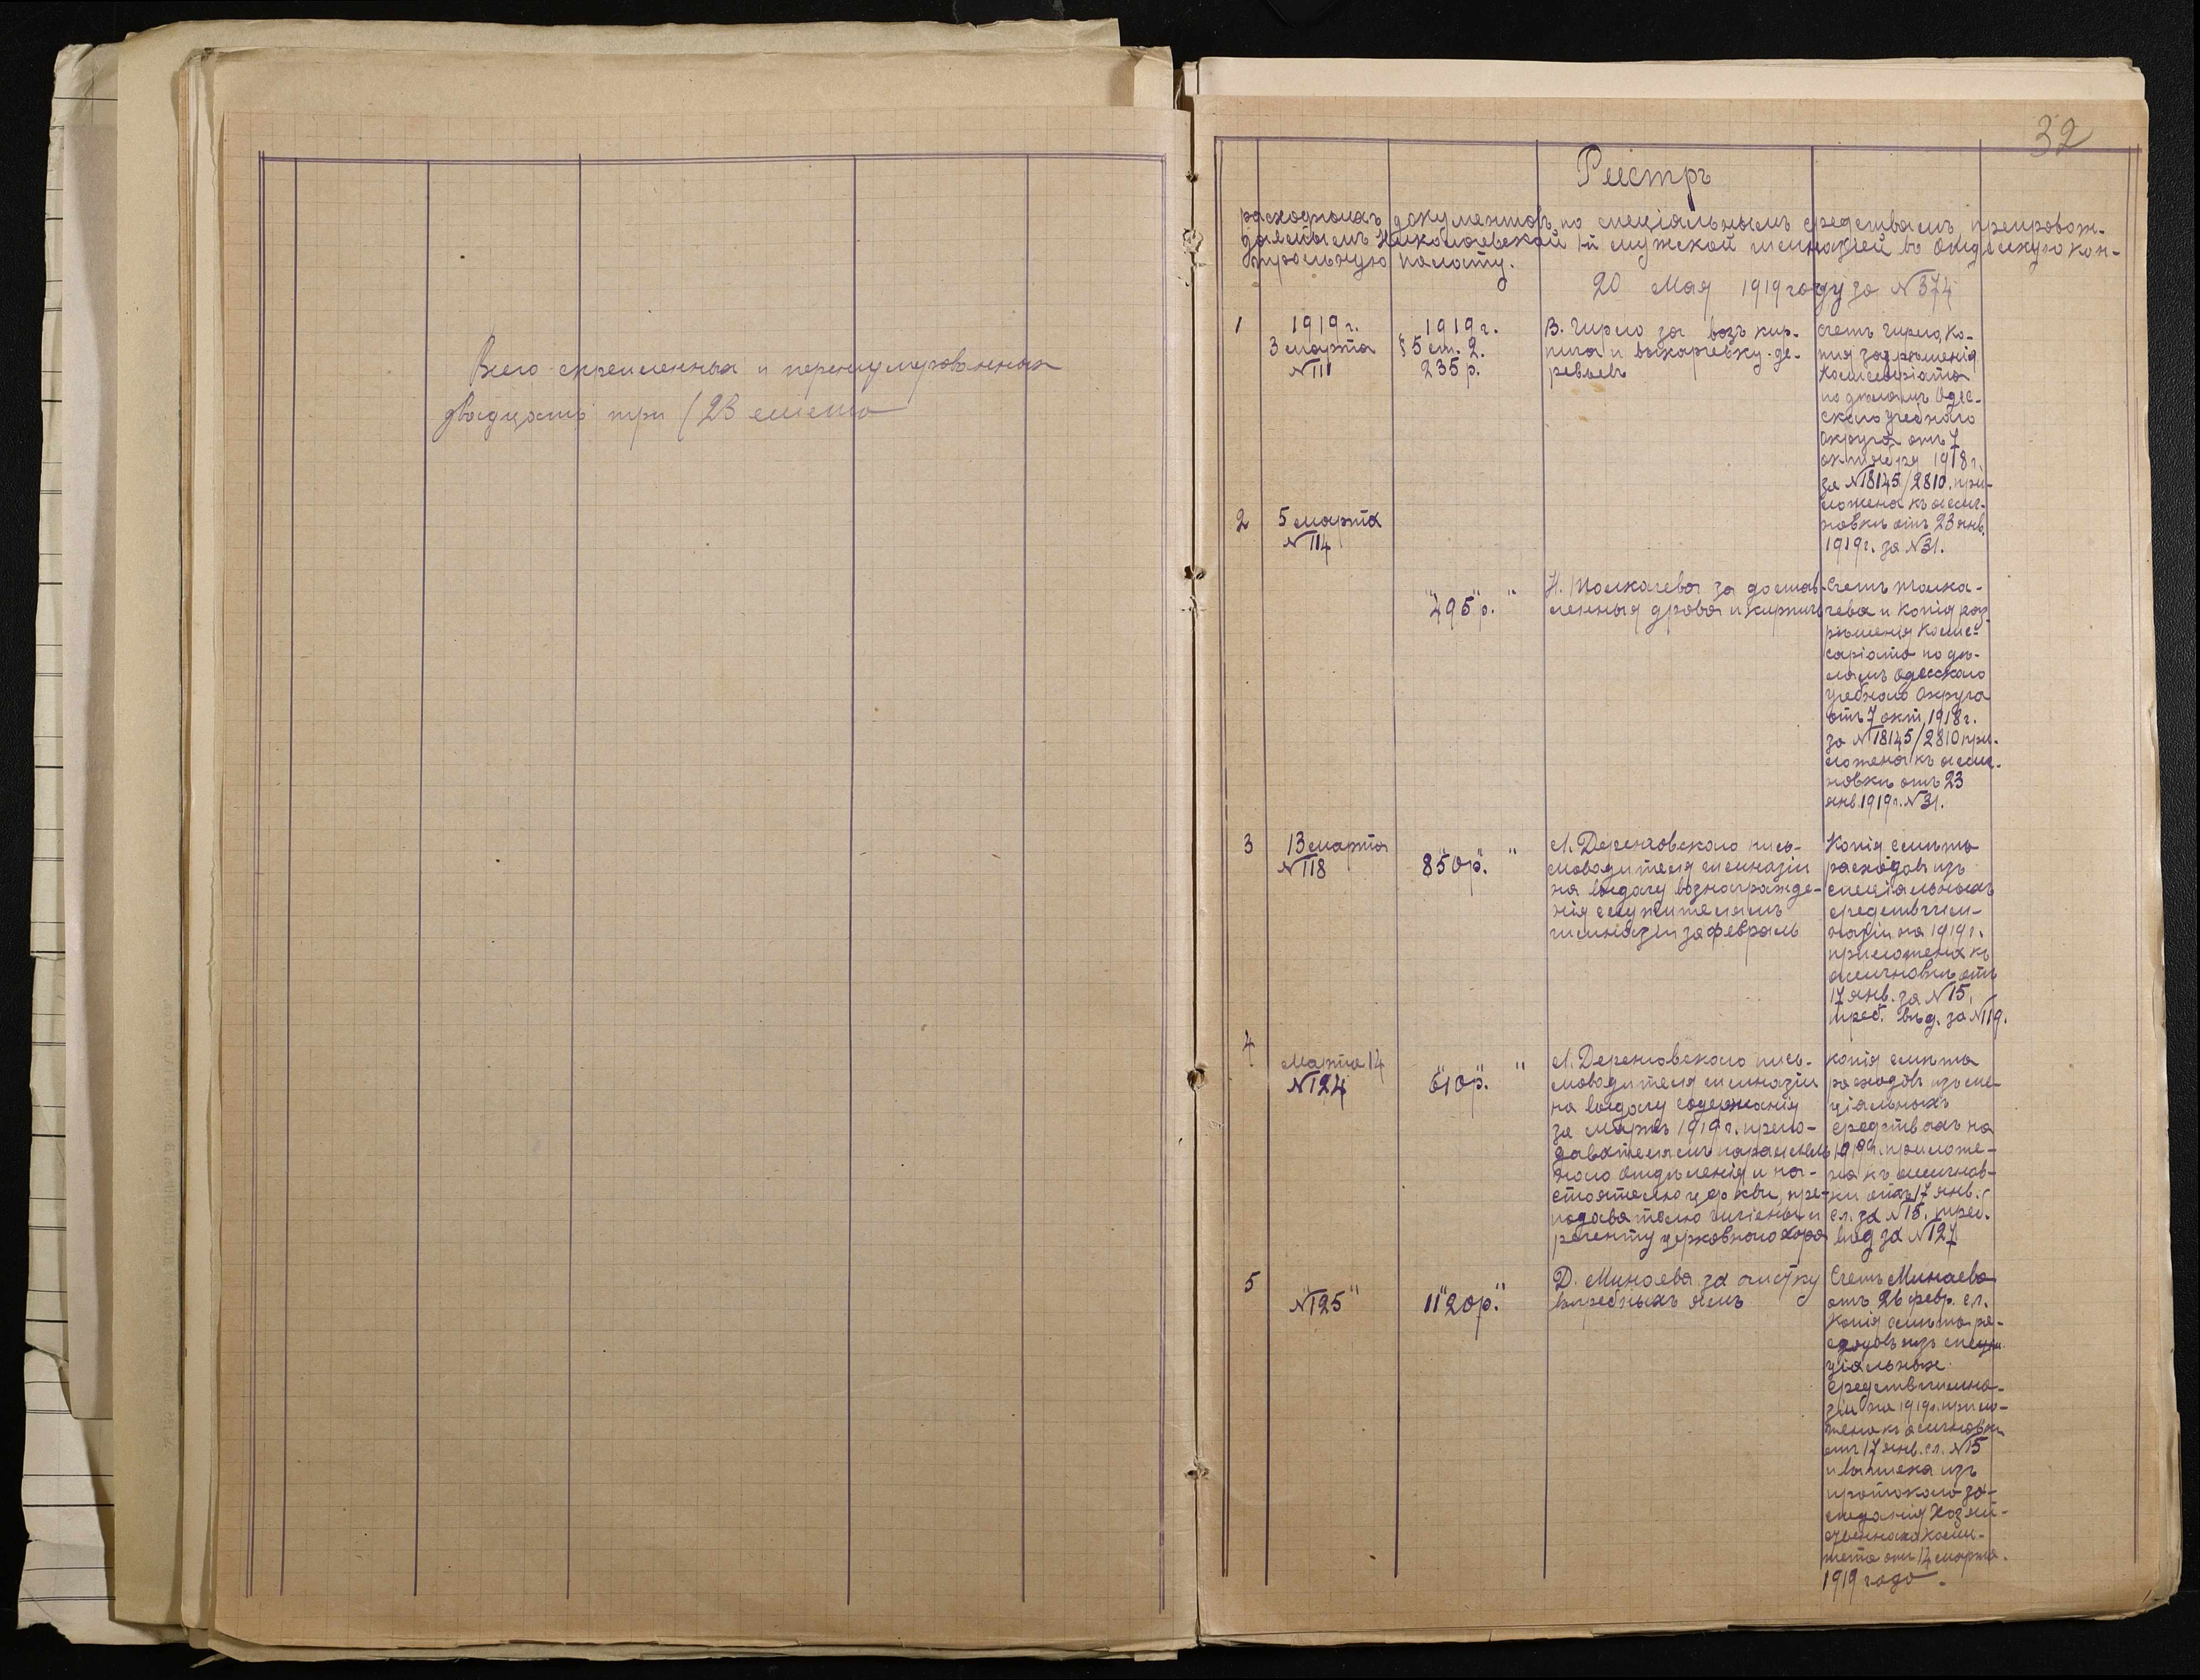 Всего скрепленных и перенумерованных
двадцать три (23 листа
32
Реестръ
расходныхъ документовъ по спеціальнымъ средствамъ, препровож-
даемымъ Николаевской 1-й мужской гимназіей въ Одесскую кон-
трольную палату.
20 Мая 1919 году за №374
1
1919 г.
3 марта
№111
1919 г.
§5 ст. 2.
235 р.
В. Чирло за возъ кир-
пича и выкорчевку де-
ревьевъ
Счетъ Чирло, Ко-
пия разрѣшенія
Комисаріата
по дѣламъ Одес-
скаго учебнаго
Округа отъ 7
октября 1918 г.
за №18145/2810. при-
ложена къ ассиг-
новкѣ отъ 23 янв.
1919 г. за №31.
2
5 марта
№114
" 495 р. "
Н. Толкачева за достав-
ленныя дрова и кирпичъ
Счетъ Толка-
чева и копія раз-
рѣшенія Комис-
саріата по дѣ-
ламъ Одесскаго
учебнаго Округа
отъ 7 окт. 1918 г.
за №18145/2810 при-
ложена къ ассиг-
новкѣ отъ 23
янв. 1919 г. №31.
3
13 марта
№118
" 850 р. "
Л. Деренговскаго пись-
моводителя гимназіи
на выдачу вознагражде-
нія служителямъ
гимназіи за февраль
Копія смѣты
расходовъ изъ
спеціальныхъ
средствъ гим-
назіи на 1919 г.
приложена къ
ассигновкѣ отъ
17 янв. за №15,
треб. вѣд. за №119.
4
Марта 14
№124
" 610 р. "
Л. Деренговскаго пись-
моводителя гимназіи
на выдачу содержанія
за Мартъ 1919 г. препо-
давателямъ параллель
наго отдѣленія и на-
стоятелю церкви, пре-
подавателю гигіены и
регенту церковнаго хора
копія смѣты
расходовъ изъ спе-
ціальныхъ
средствахъ на
1919 г. приложе-
на къ ассигнов-
ки отъ 17 янв.
с.г. за №15. треб.
вѣд за №127
5
" №125 "
" 1120 р. "
Д. Минаева за чистку
выгребныхъ ямъ
Счетъ Минаева
отъ 26 февр. с.г.
Копія смѣты ра-
сходовъ изъ спец
ціальных
средствъ гимна-
зіи на 1919 г. прило-
жена къ ассигновки
отъ 17 янв. с.г. №15
и выписка изъ
протокола за-
седанія Хозяй-
ственнаго коми-
тета отъ 14 марта.
1919 года.